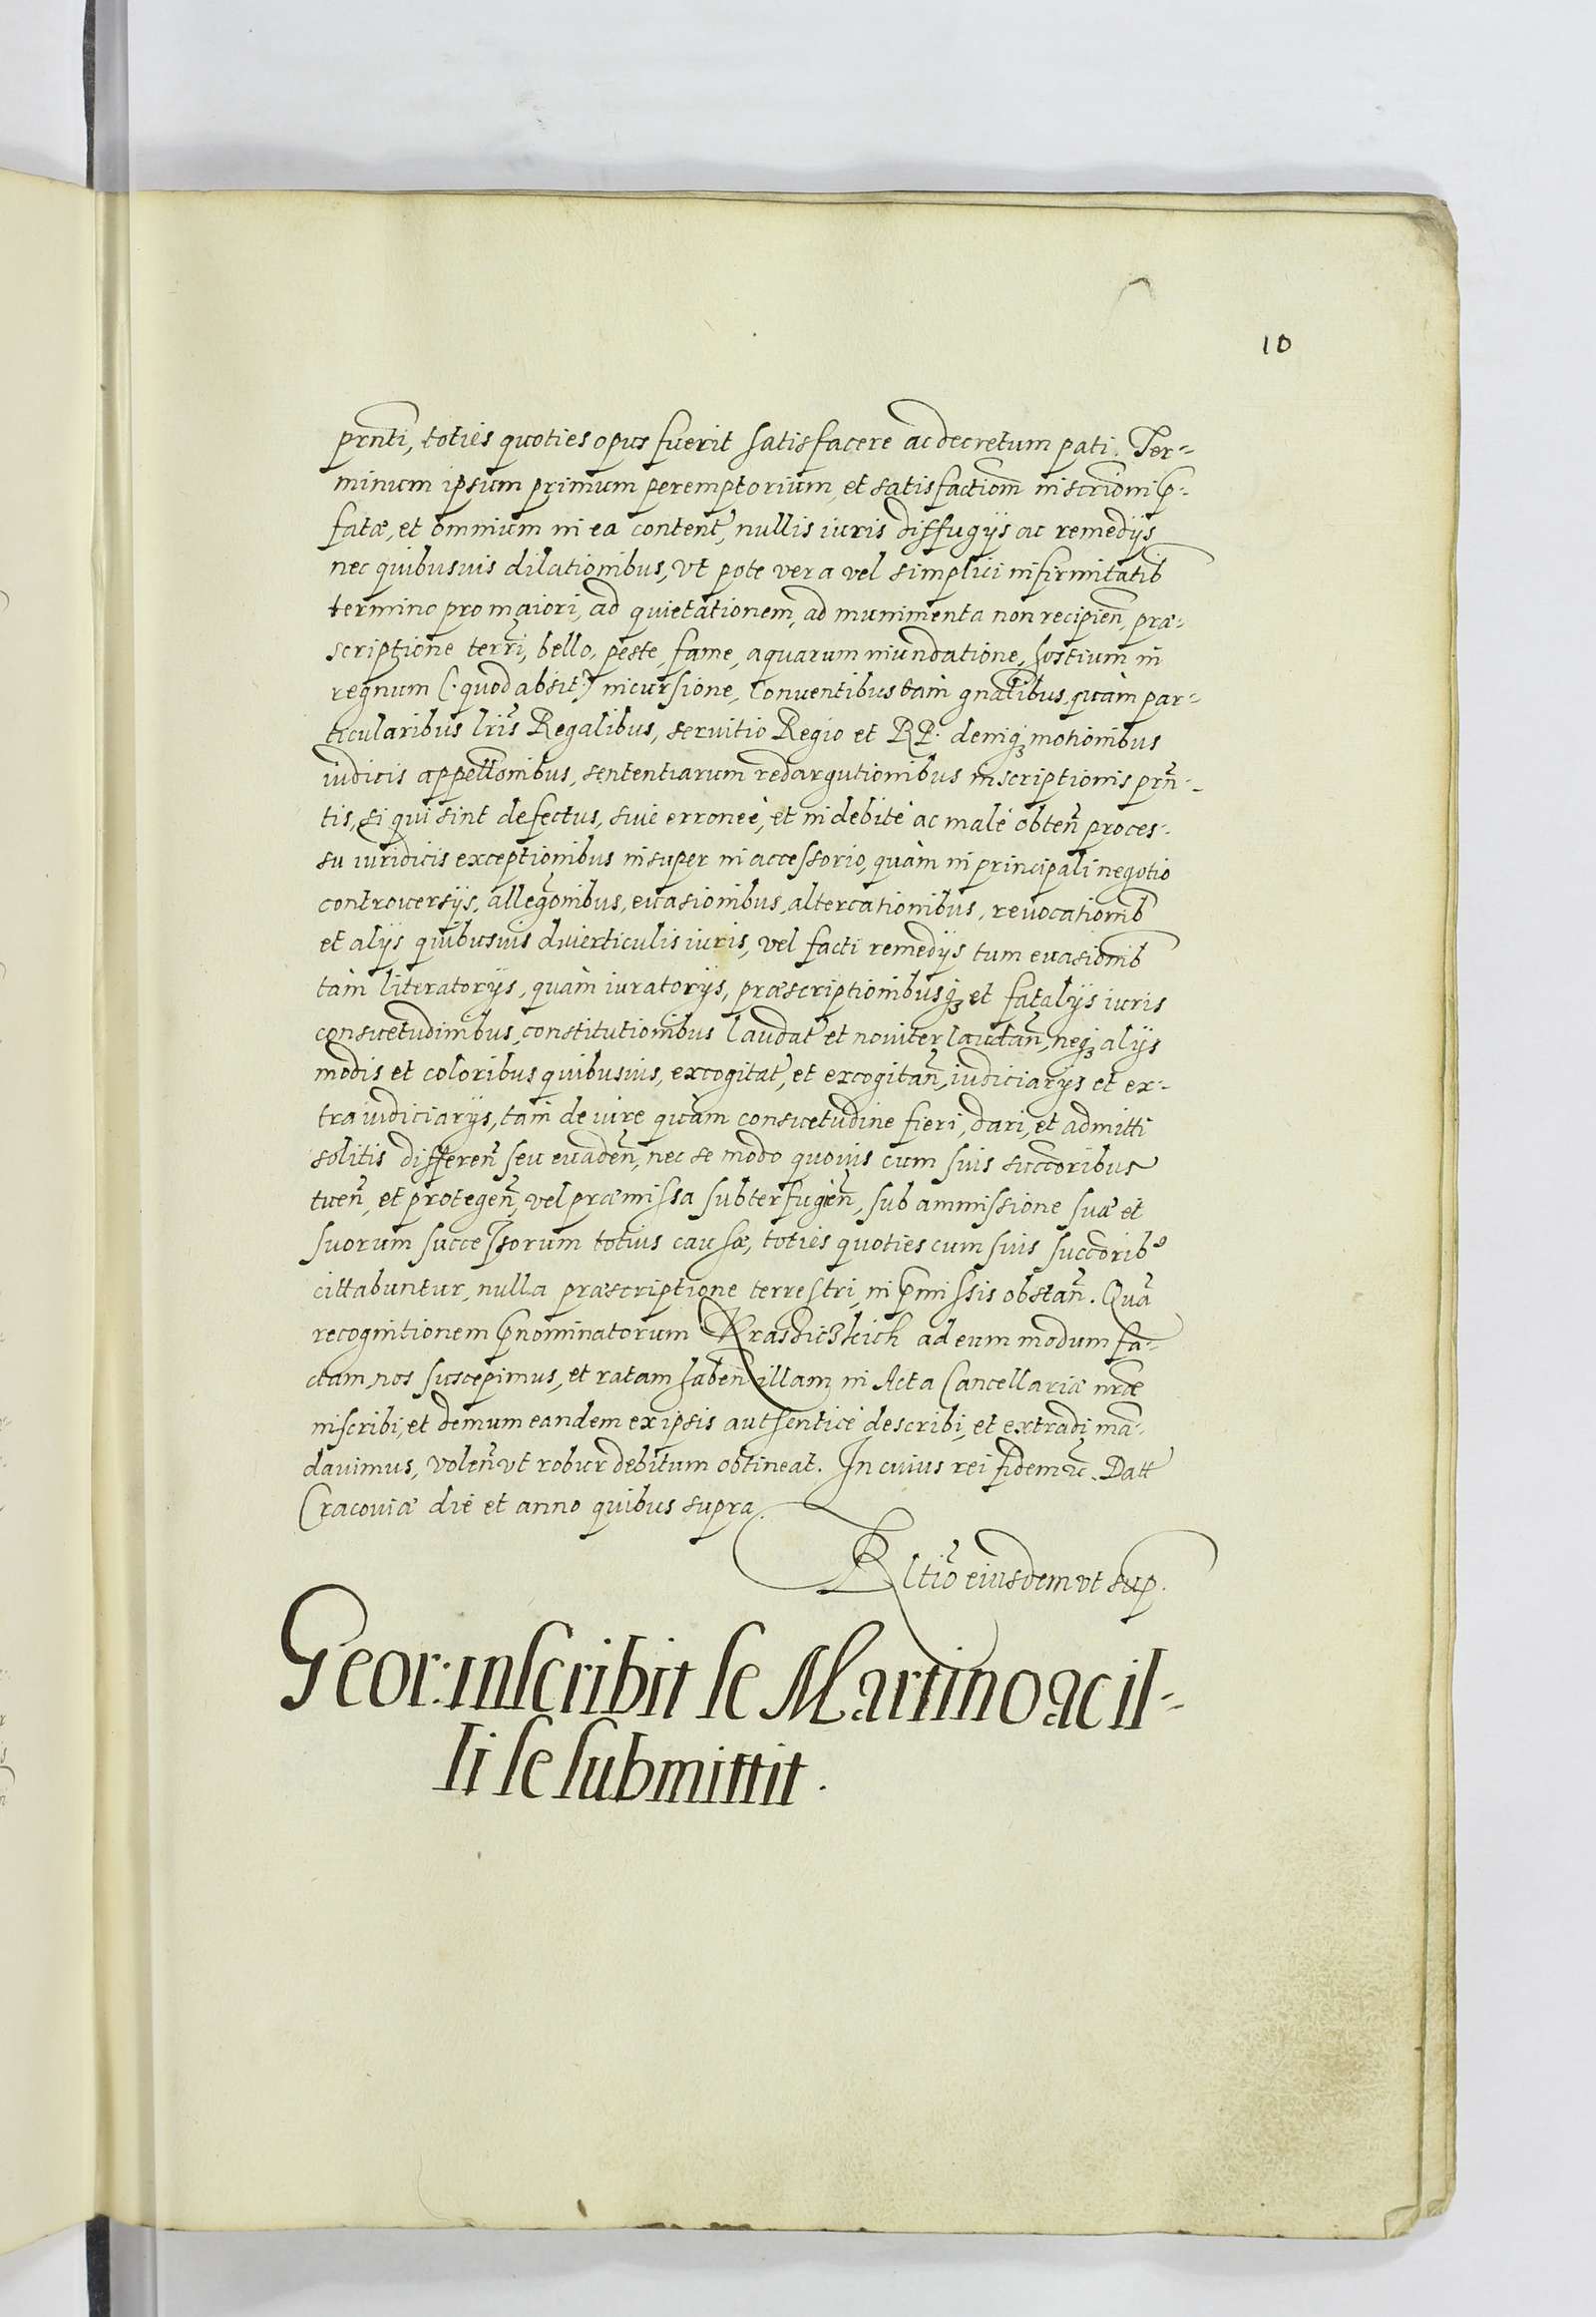 10
prnti, toties quoties opus fuerit satisfacere ac decretum pati. Ter-
minum ipsum primum peremptorium, et satisfactiom inscrioni p-
fatæ, et omnium in ea content, nullis iuris diffugijs ac remedijs
nec quibusuis dilationibus, vt pote vera vel simplici infirmitatib
termino pro maiori, ad quietationem, ad munimenta non recipien, præ-
scriptione terri, bello, peste, fame, aquarum inundatione, hostium in
regnum (: quod absit :) incursione, Conuentibus tam gnalibus, quàm par-
ticularibus lris Regalibus, seruitio Regio et RP. deniq motionibus
iudicis appellonibus, sententiarum redargutionibus inscriptionis prn-
tis, si qui sint defectus, siue erroneè, et indebitè ac malè obten proces-
su iuridicis exceptionibus insuper in accessorio, quàm in principali negotio
controuersijs, allegonibus, euasionibus, altercationibus, reuocationib
et alijs quibusuis diuerticulis iuris, vel facti remedijs tum euasionib
tàm literatorijs, quàm iuratorijs, præscriptionibusq et fatalijs iuris
consuetudinibus, constitutionibus laudat et nouiter laudan, neq alijs
modis et coloribus quibusuis, excogitat, et excogitan, iudiciarijs et ex-
traiudiciarijs, tam de iure quàm consuetudine fieri, dari, et admitti
solitis differen seu euaden, nec se modo quouis cum suis succoribus
tuen, et protegen, vel præmissa subterfugien, sub ammissione suæ et
suorum successorum totius causæ, toties quoties cum suis succorib9
cittabuntur, nulla præscriptione terrestri, in pmissis obstan. Qua
recognitionem pnominatorum Krasiczkich ad eum modum fa-
ctam, nos suscepimus, et ratam haben illam in Acta Cancellariæ nræ
inscribi, et demum eandem ex ipsis authenticè describi, et extradi ma-
dauimus, volen vt robur debitum obtineat. In cuius rei fidem etc. Datt
Cracouiæ die et anno quibus supra.
Rltio eiusdem vt sup.
Geor: inscribit se Martino ac il-
li se submittit.